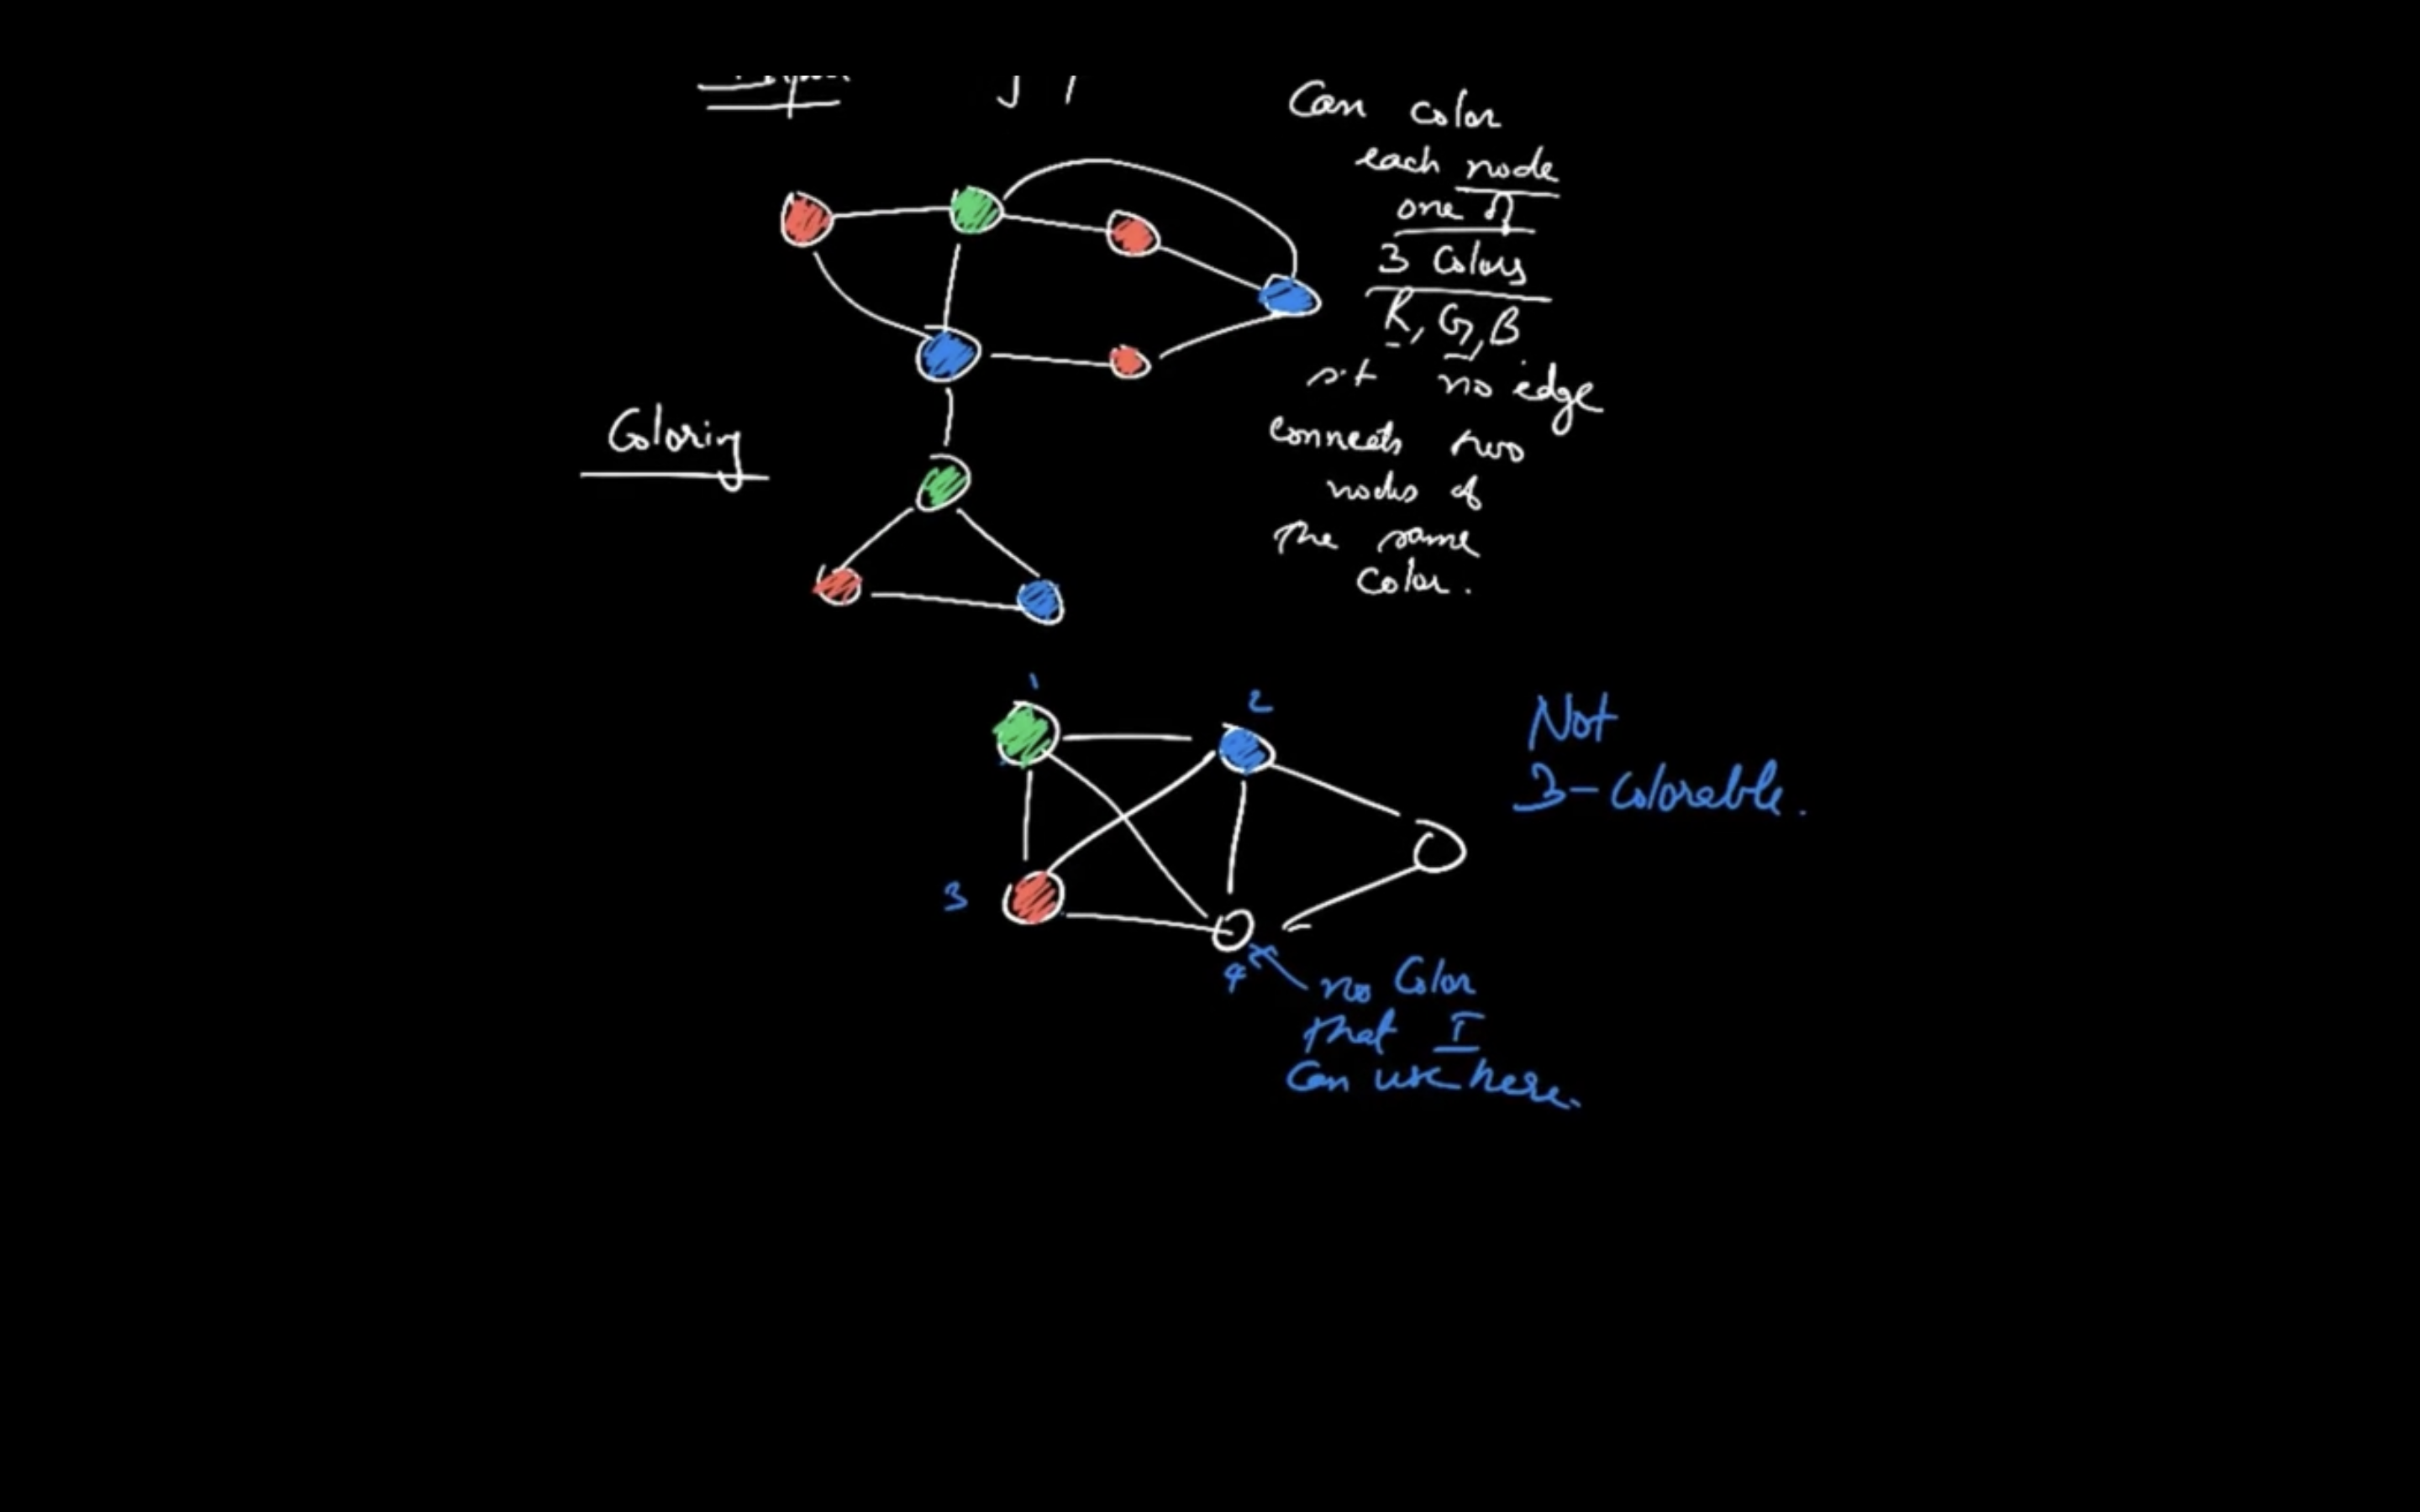 Can color
each node
one of
3 Colors
R, G, B
s.t no edge
connects two
nodes of
the same
color.
Coloring
1
2
Not
3-Colorable.
3
4
no Color
that I
Can use here.